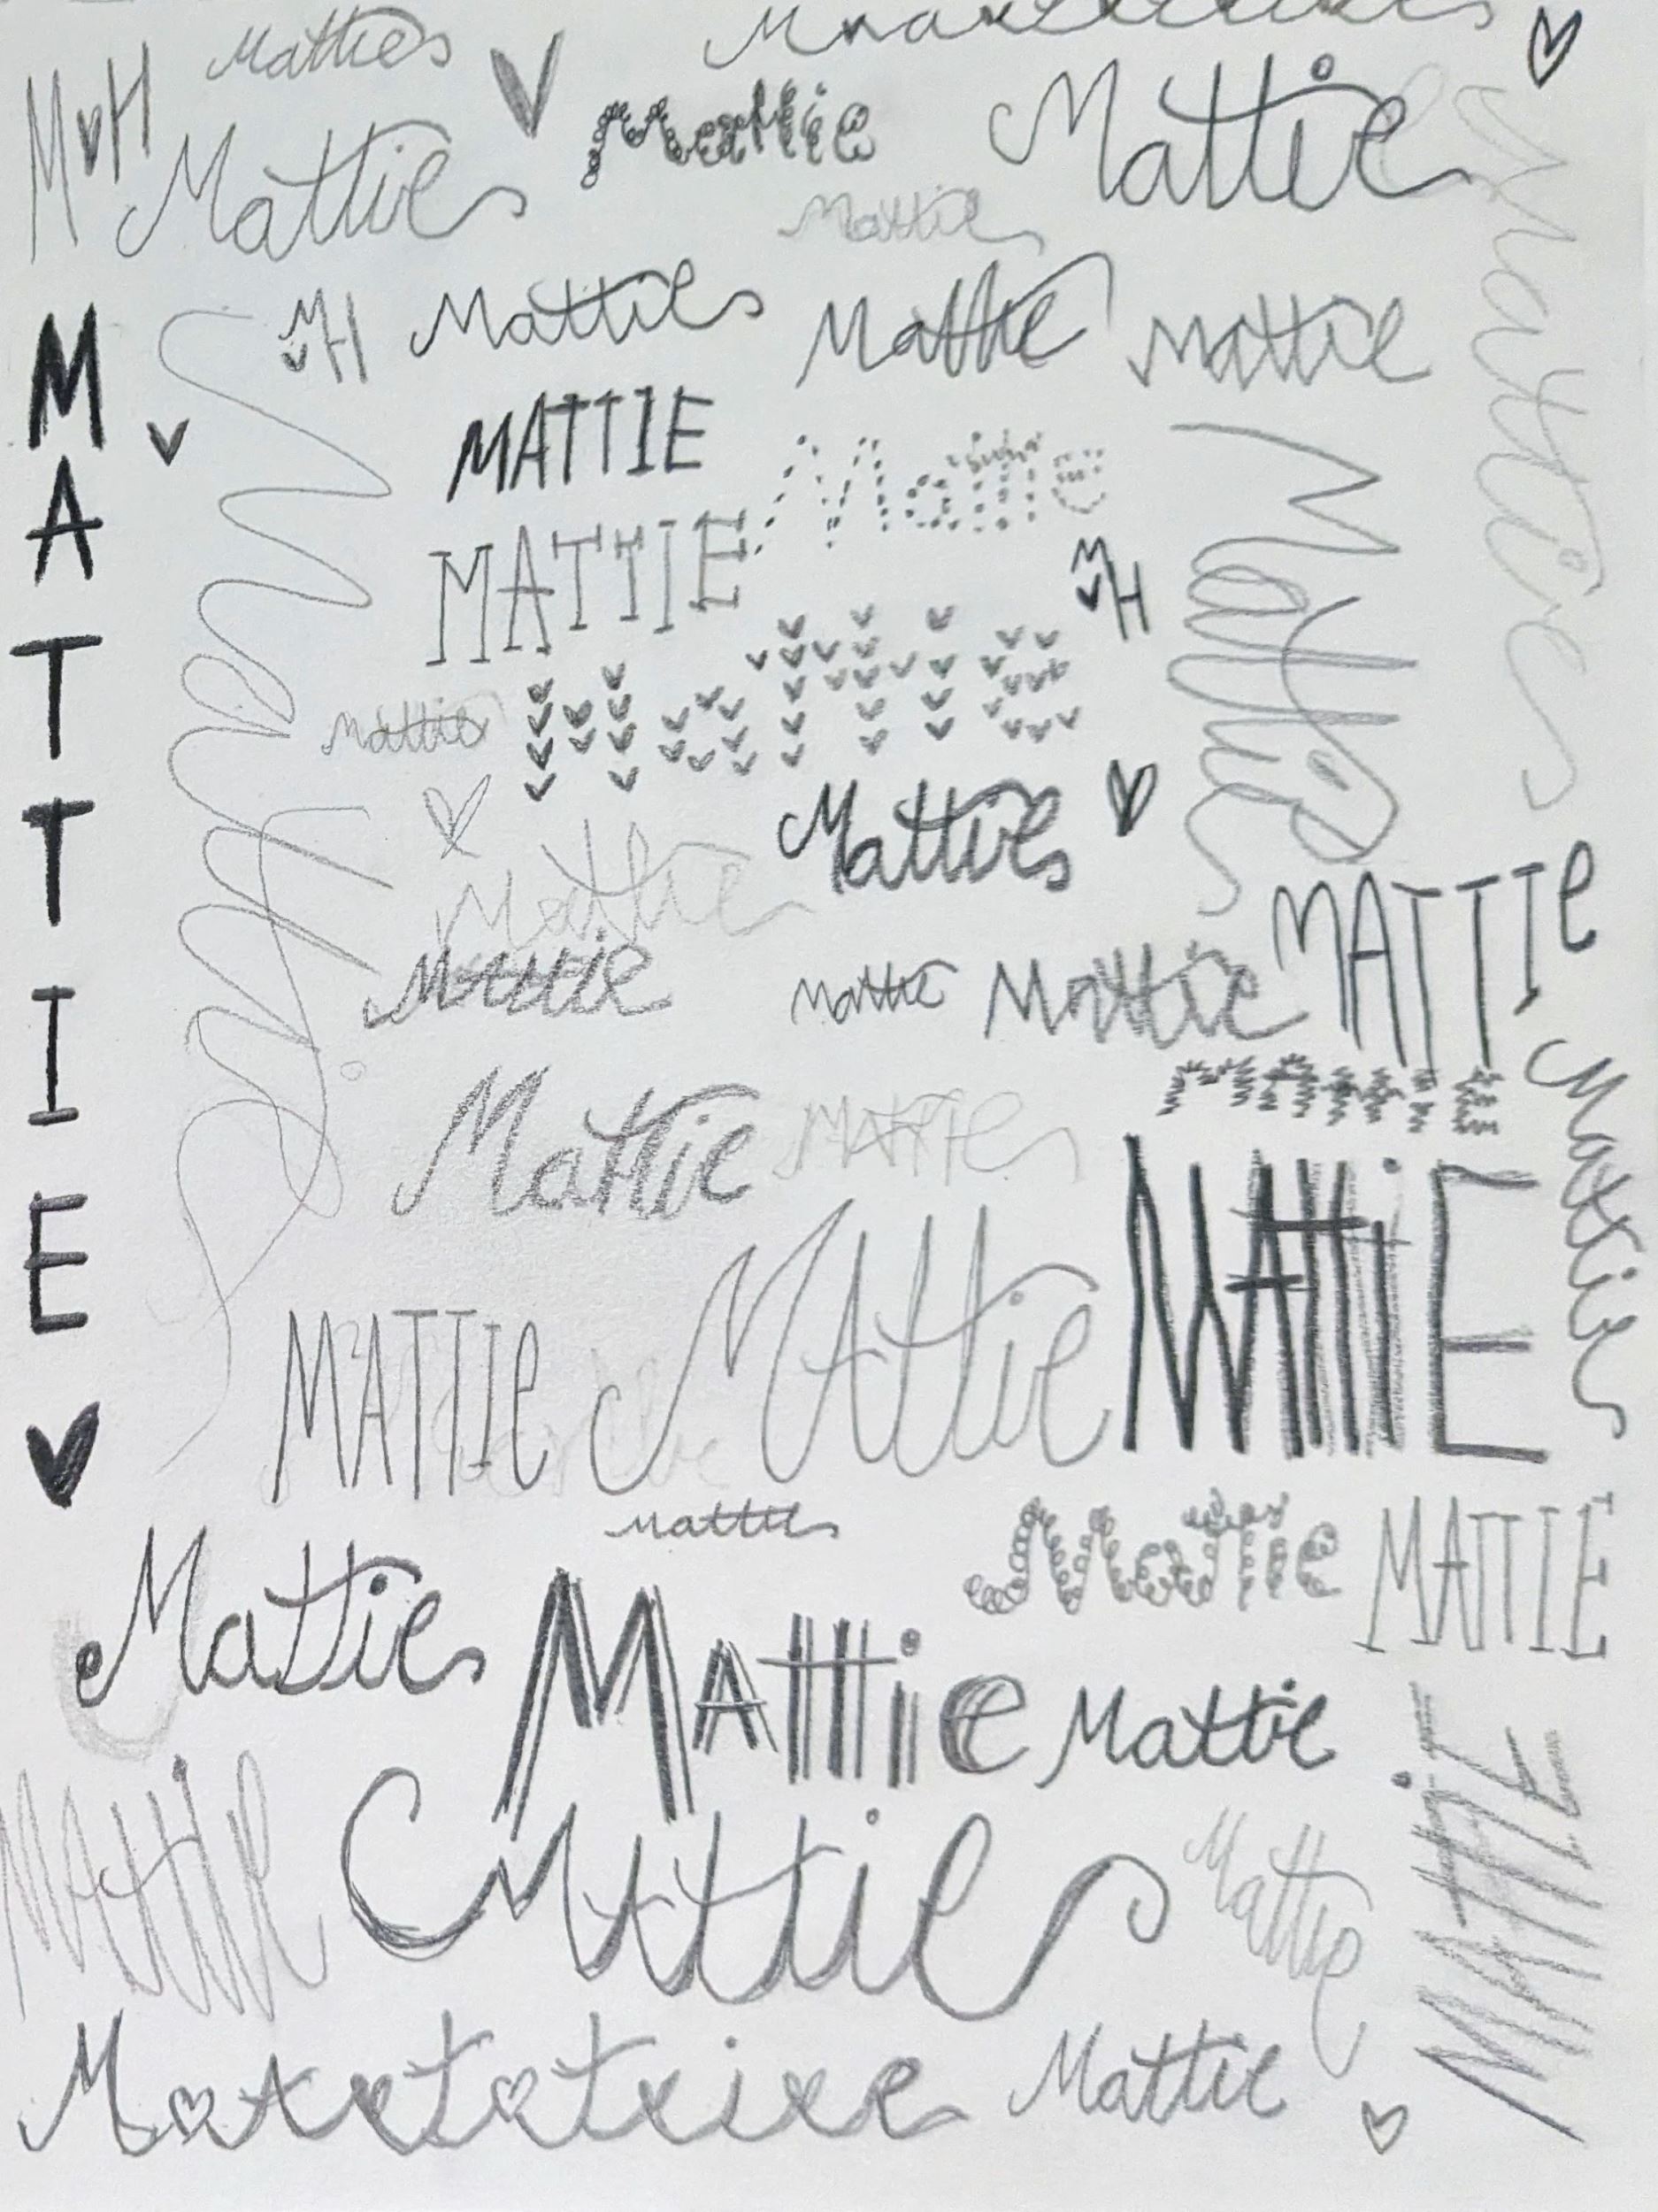 Matties
M♥H
Mattie
Mattie
Mattie
Mattie
MH
Mattie
Mattie
Mattie
Mattie
MATTIE
MATTIE
Mattie
Mattie
MATTIE
MH
MATTIE
Mattie
Mattie
Mattie
Mattie
Mattie
MATTIe
Mattie
Mattie
Mattie
MATTIE
Mattie
MATTIE
Mattie
MATTIe
MAttie
MAttiE
Mattie
Mattie
Mattie
MATTIE
Mattie
MAttie
Mattie
MATTIE
MAttie
Mattie
Mattie
Mattie